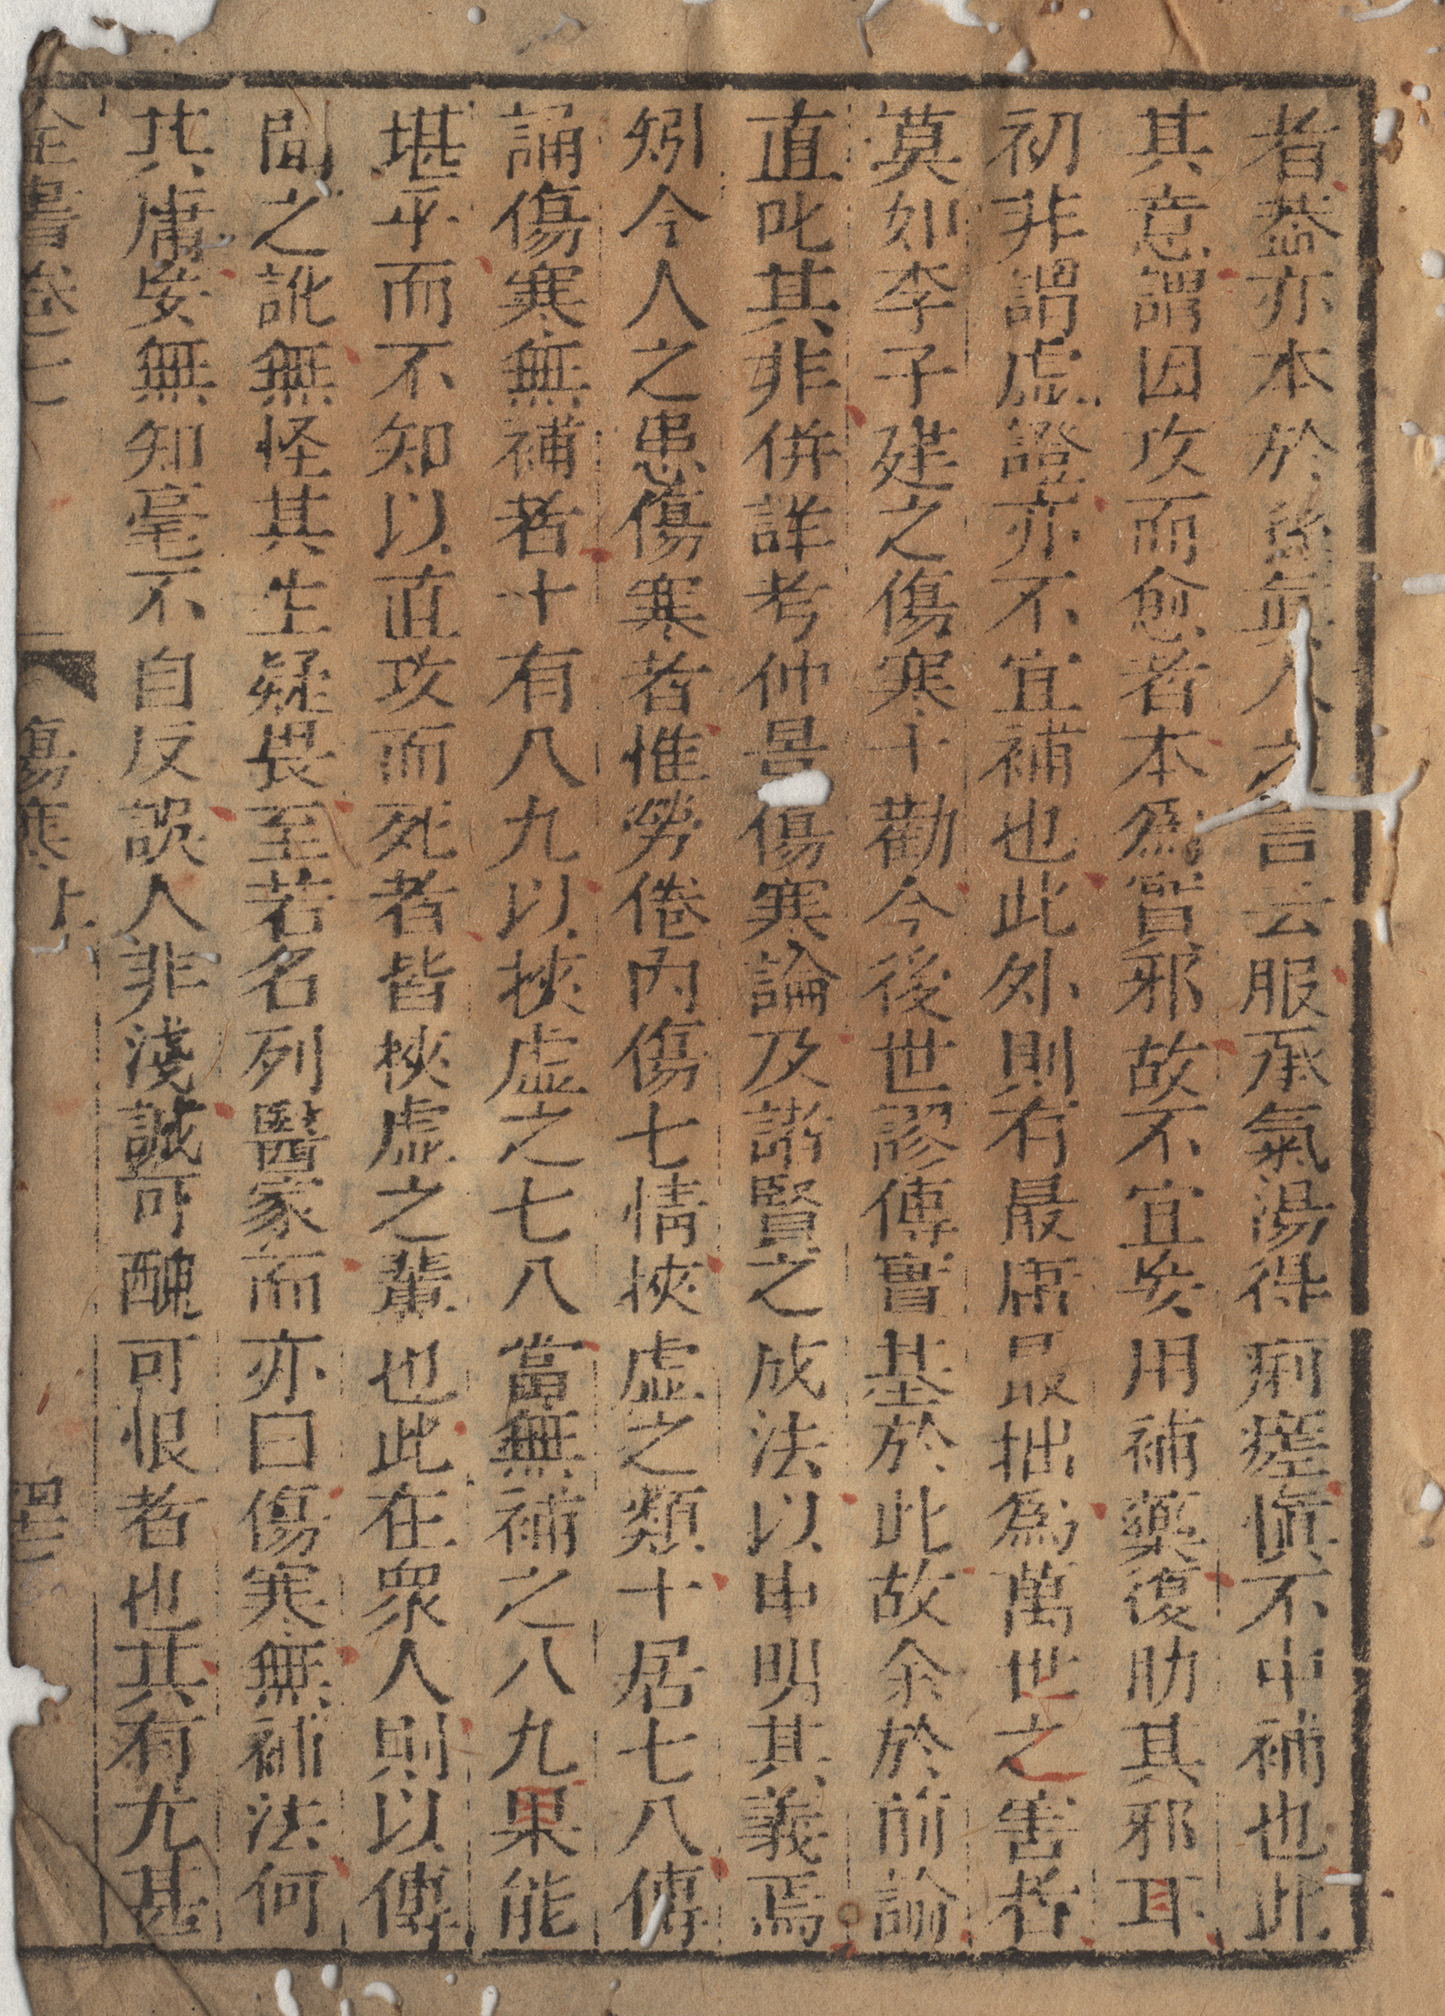 者葢亦本於孫眞人之言云服承氣湯得痢瘥愼不中補也此
其意謂因攻而愈者本爲實邪故不宜妄用補藥復助其邪耳
初非謂虛證亦不宜補也此外則有最庸最拙爲萬世之害者
莫如李子建之傷寒十勸今後世謬傳實基於此故余於前論
直叱其非併詳考仲景傷寒論及諸賢之成法以申明其義焉
矧今人之患傷寒者惟勞倦內傷七情挾虛之類十居七八傳
誦傷寒無補者十有八九以挾虛之七八當無補之八九果能
堪乎而不知以直攻而死者皆挾虛之輩也此在衆人則以傳
聞之訛無怪其生疑畏至若名列醫家而亦曰傷寒無補法何
其庸妄無知毫不自反誤人非淺誠可醜可恨者也其有尤甚
全書卷七 傷寒上